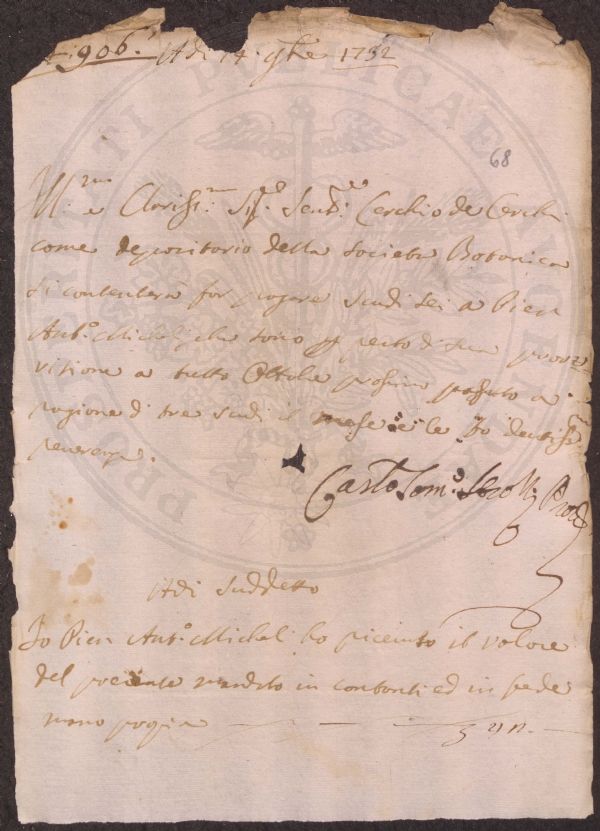 906.
Adi 14 9bre 1732
68
Ill.mo e Clariss.mo Sig.re Sen.re Cerchio de Cerchi
come depositario della Società Botanica
si contenterà far pagare scudi sei a Pier
Ant.o Micheli che sono p resto di sua prov
visione a tutto Ottobre prossimo passato a
ragione di tre scudi il mese e le fo
reverenza.
Carlo Tom.o Prov.
Adi suddetto
Io Pier Ant.o Micheli ho riceuuto il valore
del presente mandato in contanti ed in fede
mano propria
PROSPERITATI PUBLICAE AUGENDAE